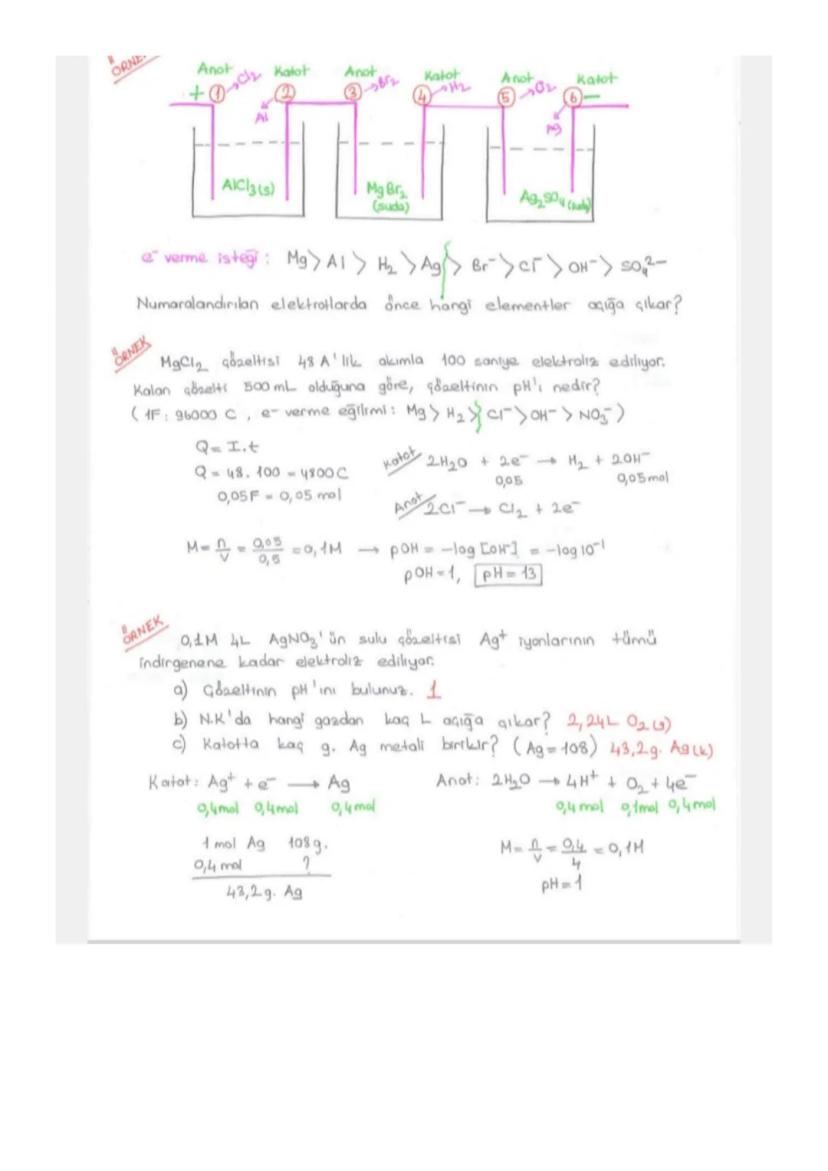 ÖRNEK
Anot Katot Anot Katot Anot Katot
+ ① → Cl₂ ② ③ → Br₂ ④ → H₂ ⑤ → O₂ ⑥ −
Al Ag
AlCl₃(s) MgBr₂ (suda) Ag₂SO₄(suda)
e⁻ verme isteği : Mg > Al > H₂ > Ag > Br⁻ > Cl⁻ > OH⁻ > SO₄²⁻
Numaralandırılan elektrotlarda önce hangi elementler açığa çıkar?
ÖRNEK
MgCl₂ çözeltisi 48 A'lik akımla 100 saniye elektroliz ediliyor.
Kalan çözelti 500 mL olduğuna göre, çözeltinin pH'ı nedir?
( 1F : 96000 C , e⁻ verme eğilimi : Mg > H₂ > Cl⁻ > OH⁻ > NO₃⁻ )
Q = I.t
Q = 48 . 100 = 4800 C
0,05F = 0,05 mol
Katot 2H₂O + 2e⁻ → H₂ + 2OH⁻
0,05 0,05 mol
Anot 2Cl⁻ → Cl₂ + 2e⁻
M = n/V = 0,05/0,5 = 0,1M → pOH = −log [OH⁻] = −log 10⁻¹
pOH = 1, pH = 13
ÖRNEK
0,1M 4L AgNO₃'ün sulu çözeltisi Ag⁺ iyonlarının tümü
indirgenene kadar elektroliz ediliyor.
a) Çözeltinin pH'ını bulunuz. 1
b) N.K'da hangi gazdan kaç L açığa çıkar? 2,24L O₂(g)
c) Katotta kaç g. Ag metali birikir? ( Ag = 108 ) 43,2 g. Ag(k)
Katot : Ag⁺ + e⁻ → Ag
0,4mol 0,4mol 0,4mol
1 mol Ag 108 g.
0,4 mol ?
43,2 g. Ag
Anot : 2H₂O → 4H⁺ + O₂ + 4e⁻
0,4 mol 0,1mol 0,4mol
M = n/V = 0,4/4 = 0,1M
pH = 1